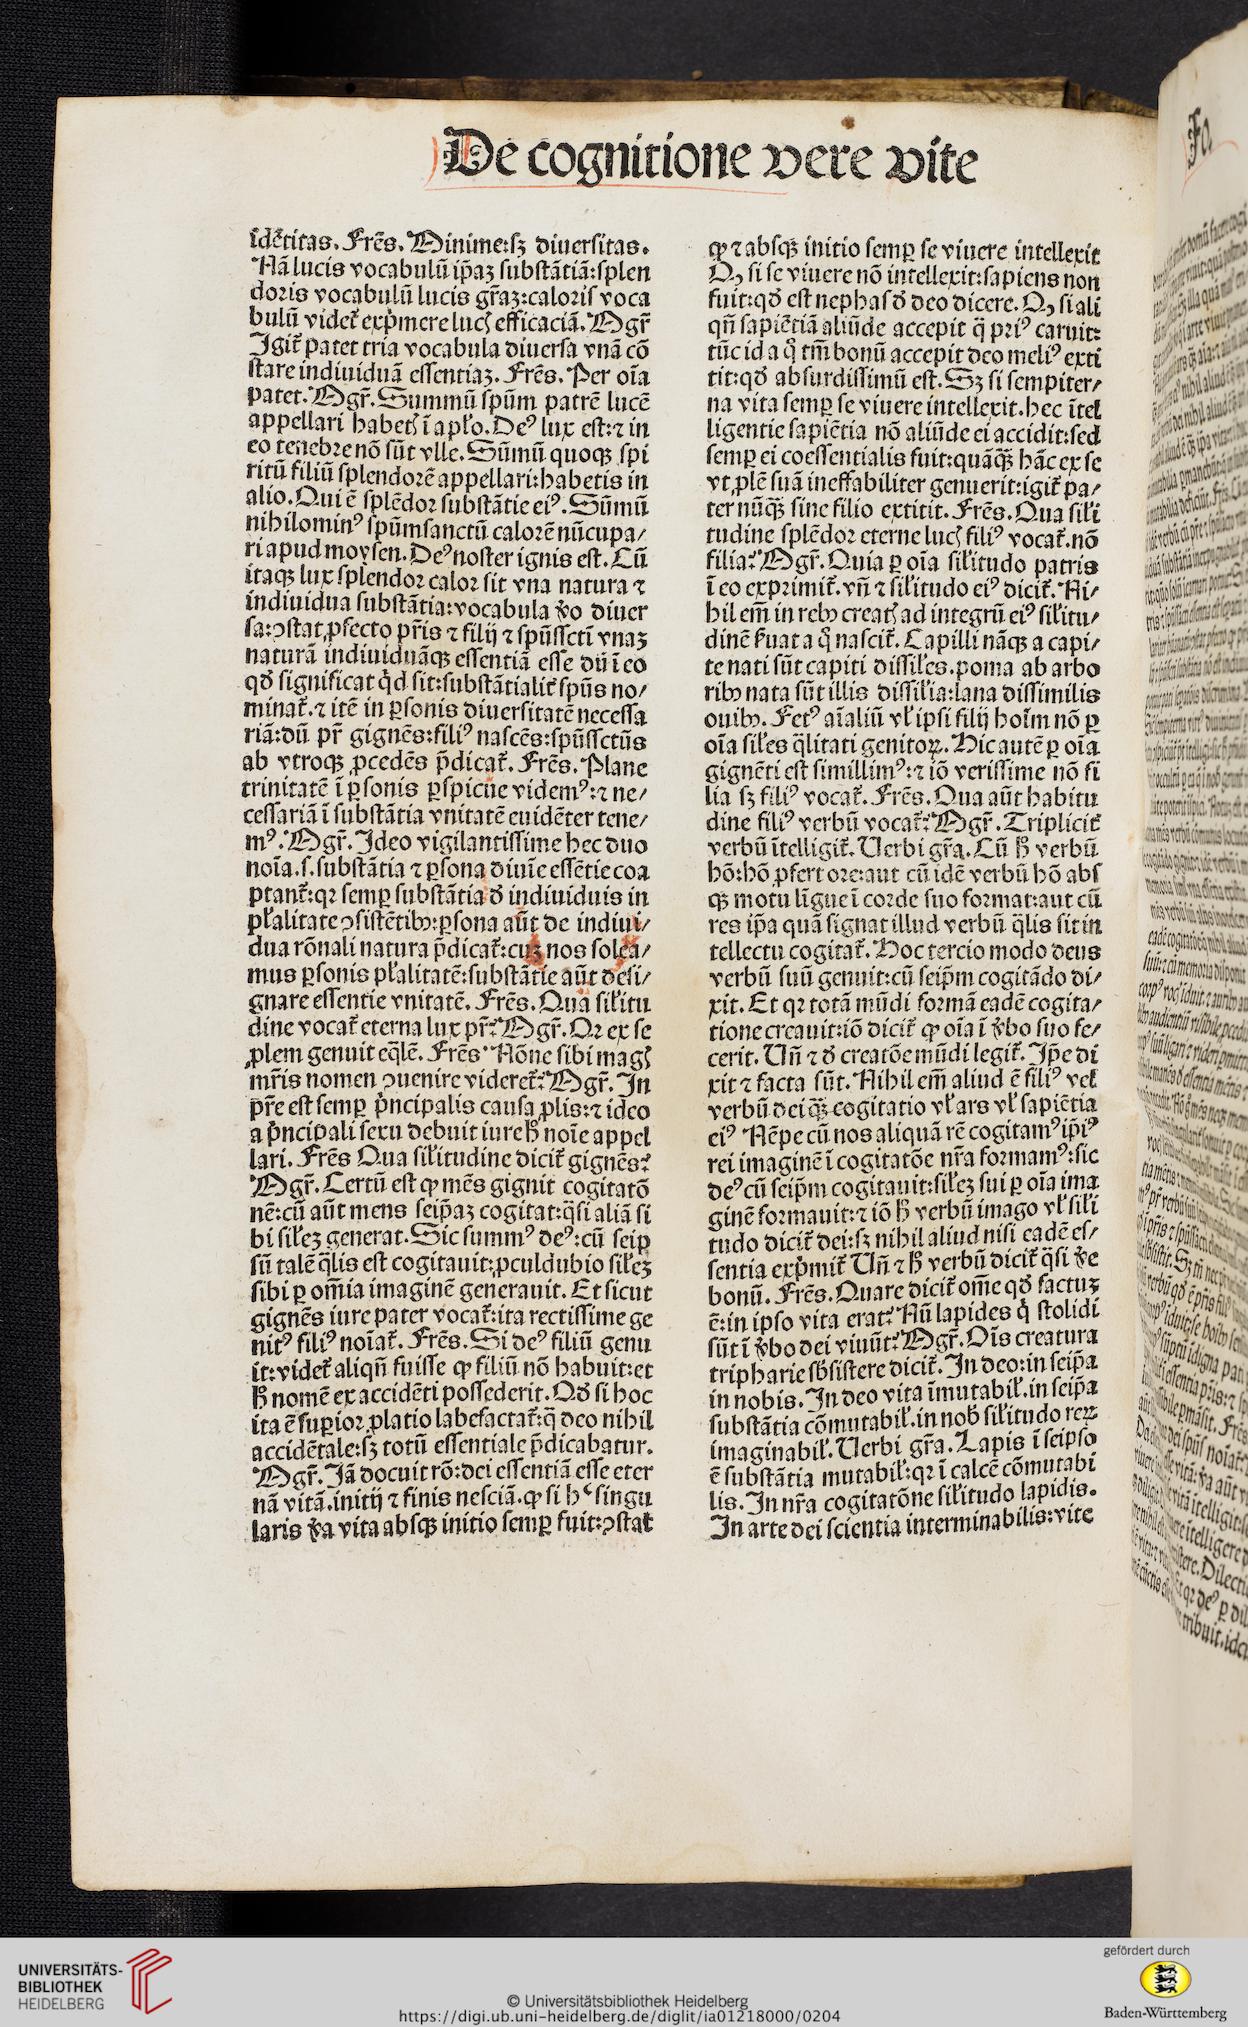 De cognitione vere vite
idētitas. Frēs. Minime:sꝫ diuersitas.
Nā lucis vocabulū ip̄aꝫ substātiā:splen
doris vocabulū lucis gr̄aꝫ:caloris voca
bulū videt᷑ exp̄mere lucꝭ efficaciā. Mgr̄
Igit᷑ patet tria vocabula diuersa vnā cō
stare indiuiduā essentiaꝫ. Frēs. Per oīa
patet. Mgr̄. Summū spūm patrē lucē
appellari habetꝭ ī apl'o. Deꝰ lux est:⁊ in
eo tenebre nō sūt vlle. Sūmū quoqꝫ spi
ritū filiū splendorē appellari:habetis in
alio. Qui ē splēdor substātie eiꝰ. Sūmū
nihilominꝰ spūmsanctū calorē nūcupa/
ri apud moysen. Deꝰ noster ignis est. Cū
itaqꝫ lux splendor calor sit vna natura ⁊
indiuidua substātia:vocabula v̄o diuer
sa:ꝯstat ꝓfecto pr̄is ⁊ filij ⁊ spūssctī vnaꝫ
naturā indiuiduāqꝫ essentiā esse dū ī eo
qd̄ significat qͥd sit:substātialit᷑ spūs no/
minat᷑.⁊ itē in ꝑsonis diuersitatē necessa
riā:dū pr̄ gignēs:filiꝰ nascēs:spūssctūs
ab vtroqꝫ ꝓcedēs p̄dicat᷑. Frēs. Plane
trinitatē ī ꝑsonis ꝑspicue videmꝰ:⁊ ne/
cessariā ī substātia vnitatē euidēter tene/
mꝰ. Mgr̄. Ideo vigilantissime hec duo
noīa.s.substātia ⁊ ꝑsona diuīe essētie coa
ptant᷑:qꝛ semꝑ substātia d̄ indiuiduis in
pl'alitate ꝯsistētibꝰ:ꝑsona aūt de indiui/
dua rōnali natura p̄dicat᷑:cuꝫ nos soleā/
mus ꝑsonis pl'alitatē:substātie aūt desi/
gnare essentie vnitatē. Frēs. Qua sil'itu
dine vocat᷑ eterna lux pr̄? Mgr̄. Qꝛ ex se
ꝓlem genuit eq̄lē. Frēs Nōne sibi magꝭ
mr̄is nomen ꝯuenire videret᷑? Mgr̄. In
pr̄e est semꝑ p̄ncipalis causa ꝓlis:⁊ ideo
a p̄ncipali sexu debuit iure hͦ noīe appel
lari. Frēs Qua sil'itudine dicit᷑ gignēs?
Mgr̄. Certū est ꝙ mēs gignit cogitatō
nē:cū aūt mens seip̄aꝫ cogitat:q̄si aliā si
bi sil'eꝫ generat. Sic summꝰ deꝰ:cū seip̄
sū talē q̄lis est cogitauit:ꝓculdubio sil'eꝫ
sibi ꝑ om̄ia imaginē generauit. Et sicut
gignēs iure pater vocat᷑:ita rectissime ge
nitꝰ filiꝰ noīat᷑. Frēs. Si deꝰ filiū genu
it:videt᷑ aliqn̄ fuisse ꝙ filiū nō habuit:et
hͦ nomē ex accidēti possederit. Qd̄ si hoc
ita ē superior ꝓlatio labefactat᷑:q̄ deo nihil
accidētale:sꝫ totū essentiale p̄dicabatur.
Mgr̄. Iā docuit rō:dei essentiā esse eter
nā vitā.initij ⁊ finis nesciā.ꝙ si hᶜ singu
laris v̄a vita absqꝫ initio semꝑ fuit:ꝯstat
ꝙ ⁊ absqꝫ initio semꝑ se viuere intellexit
Qꝫ si se viuere nō intellexit:sapiens non
fuit:qd̄ est nephas d̄ deo dicere. Qꝫ si ali
qn̄ sapiētiā aliūde accepit q̄ priꝰ caruit:
tūc id a qͦ tm̄ bonū accepit deo meliꝰ exti
tit:qd̄ absurdissimū est. Sꝫ si sempiter/
na vita semꝑ se viuere intellexit.hec ītel
ligentie sapiētia nō aliūde ei accidit:sed
semꝑ ei coessentialis fuit:quāqꝫ hāc ex se
vt ꝓlē suā ineffabiliter genuerit:igit᷑ pa/
ter nūqꝫ sine filio extitit. Frēs. Qua sil'i
tudine splēdor eterne lucꝭ filiꝰ vocat᷑.nō
filia? Mgr̄. Quia ꝑ oīa sil'itudo patris
ī eo exprimit᷑.vn̄ ⁊ sil'itudo eiꝰ dicit᷑. Ni/
hil em̄ in rebꝰ creatꝭ ad integrū eiꝰ sil'itu/
dinē ẜuat a qͦ nascit᷑. Capilli nāqꝫ a capi/
te nati sūt capiti dissil'es.poma ab arbo
ribꝰ nata sūt illis dissil'ia:lana dissimilis
ouibꝰ. Fetꝰ aīaliū vl' ipsi filij hoīm nō ꝑ
oīa sil'es q̄litati genitoꝝ. Hic autē ꝑ oīa
gignēti est simillimꝰ:⁊ iō verissime nō fi
lia sꝫ filiꝰ vocat᷑. Frēs. Qua aūt habitu
dine filiꝰ verbū vocat᷑? Mgr̄. Triplicit᷑
verbū ītelligit᷑. Verbi gr̄a. Cū hͦ verbū
hō:hō ꝓfert ore:aut cū idē verbū hō abs
qꝫ motu līgue ī corde suo format:aut cū
res ip̄a quā signat illud verbū q̄lis sit in
tellectu cogitat᷑. Hoc tercio modo deus
verbū suū genuit:cū seip̄m cogitādo di/
xit. Et qꝛ totā mūdi formā eadē cogita/
tione creauit:iō dicit᷑ ꝙ oīa ī v̄bo suo fe/
cerit. Vn̄ ⁊ d̄ creatōe mūdi legit᷑. Ip̄e di
xit ⁊ facta sūt. Nihil em̄ aliud ē filiꝰ vel'
verbū dei qꝫ cogitatio vl' ars vl' sapiētia
eiꝰ Nēpe cū nos aliquā rē cogitamꝰ ip̄iꝰ
rei imaginē ī cogitatōe nr̄a formamꝰ:sic
deꝰ cū seip̄m cogitauit:sil'eꝫ sui ꝑ oīa ima
ginē formauit:⁊ iō hͦ verbū imago vl' sil'i
tudo dicit᷑ dei:sꝫ nihil aliud nisi eadē es/
sentia exp̄mit᷑ Vn̄ ⁊ hͦ verbū dicit᷑ q̄si v̄e
bonū. Frēs. Quare dicit᷑ om̄e qd̄ factuꝫ
ē:in ipso vita erat? Nū lapides qͥ stolidi
sūt ī v̄bo dei viuūt? Mgr̄. Oīs creatura
tripharie sb̄sistere dicit᷑. In deo:in seip̄a
in nobis. In deo vita īmutabil'.in seip̄a
substātia cōmutabil'.in nob̄ sil'itudo reꝝ
imaginabil'. Verbi gr̄a. Lapis ī seipso
ē substātia mutabil':qꝛ ī calcē cōmutabi
lis. In nr̄a cogitatōne sil'itudo lapidis.
In arte dei scientia interminabilis:vite
Fo.
UNIVERSITÄTS-
BIBLIOTHEK
HEIDELBERG
© Universitätsbibliothek Heidelberg
https://digi.ub.uni-heidelberg.de/diglit/ia01218000/0204
gefördert durch
Baden-Württemberg